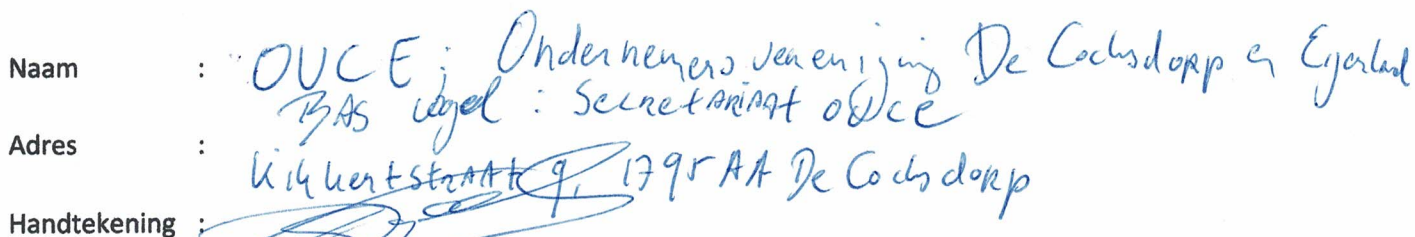 Naam : OUCE ; Ondernemersvereniging De Cocksdorp en Eijerland
BAS Vogel : Secretariaat OUCE
Adres :
Kikkertstraat 9, 1795 AA De Cocksdorp
Handtekening :